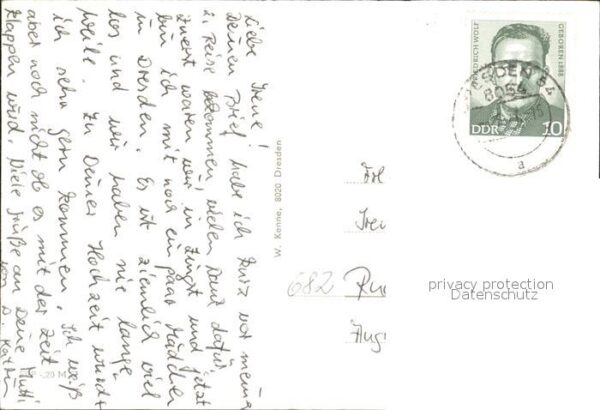 Liebe Irene!
Deinen Brief habe ich kurz vor meiner
2. Reise bekommen, vielen Dank dafür.
Zuerst waren wir in Zingst und jetzt
bin ich mit noch ein paar Mädchen
in Dresden. Es ist ziemlich viel
los und wir haben nie lange-
weile. Zu Deiner Hochzeit würde
ich sehr gern kommen. Ich weiß
aber noch nicht ob es mit der Zeit
klappen wird. Viele Grüße an Deine Mutti
von D. Katrin
-,20 M
W. Kenne, 8020 Dresden
FRIEDRICH WOLF
GEBOREN 1888
DDR 10
DRESDEN 54
8054
a
Frl
Irei
682 Rud
Aug
privacy protection
Datenschutz